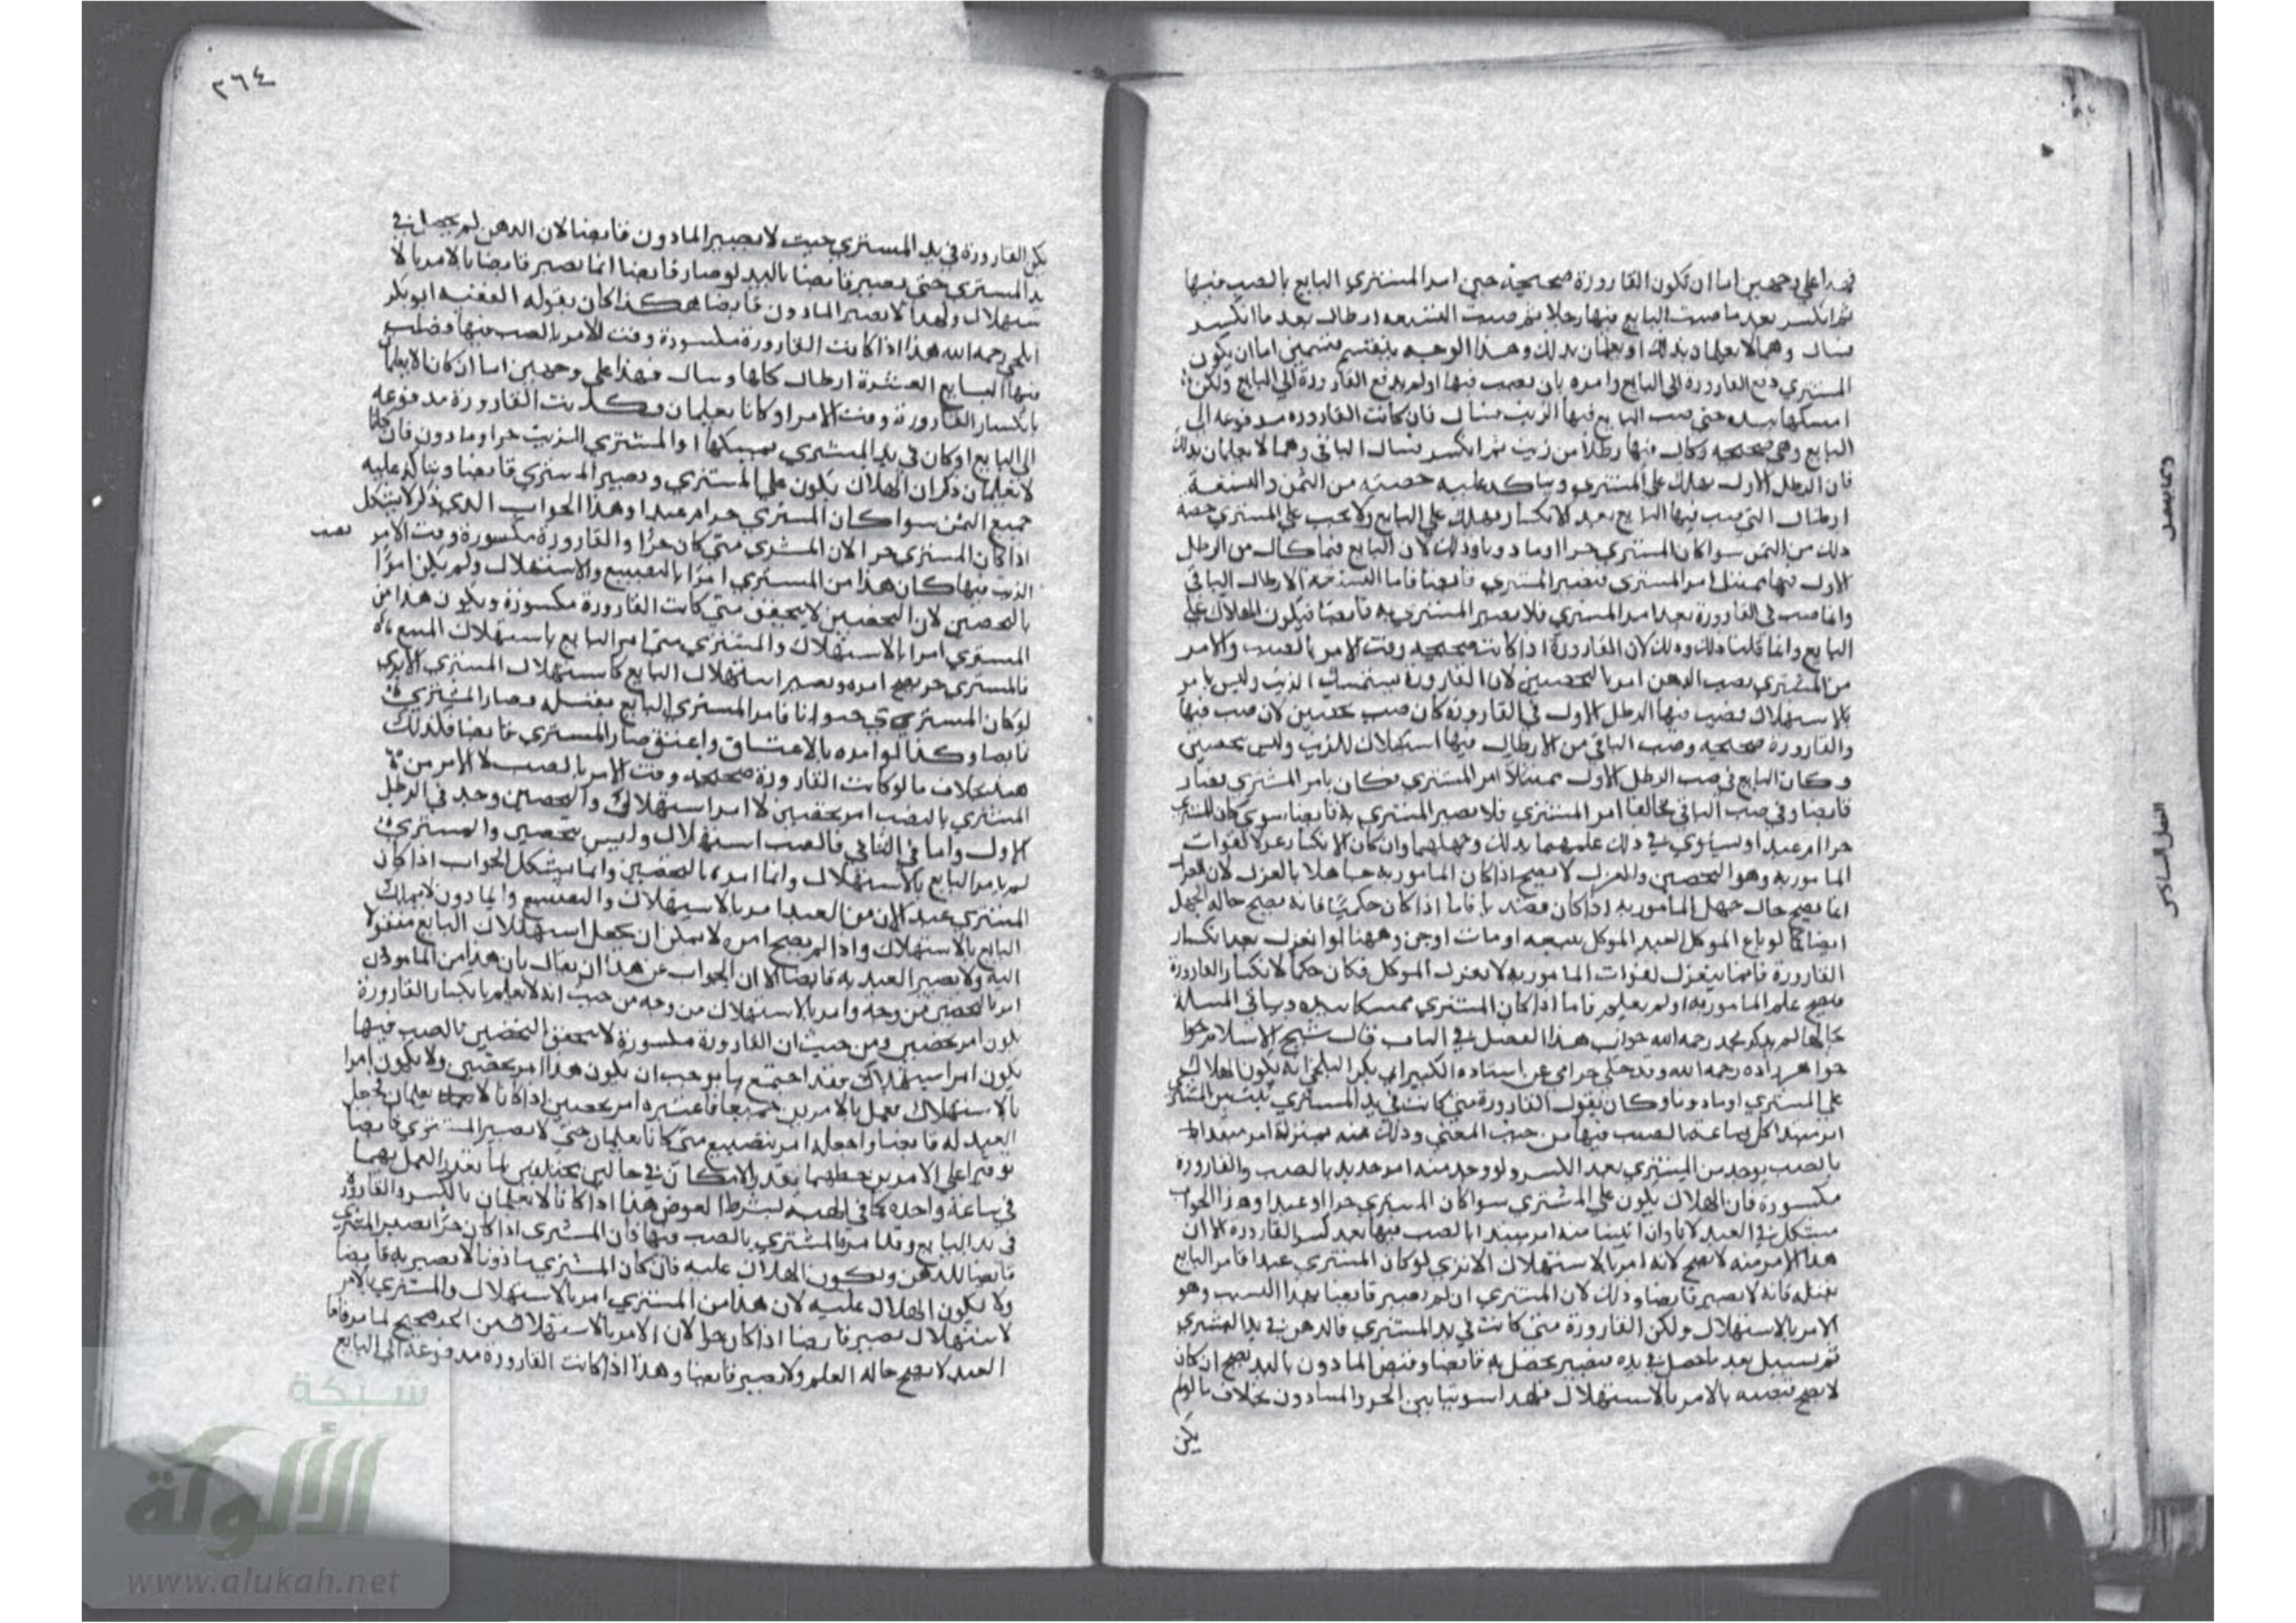 فهذا على وجهين اما ان تكون القارورة صحيحة حين امر المشتري البايع بالصب فيها
ثم انكسر بعد ما صب البايع فيها رطلا ثم صب التسعه ارطال بعد ما انكسر
فسال وهما لا يعلمان بذلك او يعلمان بذلك وهذا الوجه ينقسم قسمين اما ان يكون
المشتري دفع القارورة الى البايع وامره بان يصب فيها او لم يدفع القارورة الى البايع ولكن
امسكها بيده حتى صب البايع فيها الزيت فسال فان كانت القاروره مدفوعه الى
البايع وهي صحيحه وكال فيها رطلا من زيت ثم انكسر فسال الباقي وهما لا يعلمان بذلك
فان الرطل الاول يهلك على المشتري ويتاكد عليه حصته من الثمن والتسعة
ارطال التي صب فيها البايع بعد الانكسار يهلك على البايع ولا يجب على المشتري حصة
ذلك من الثمن سوا كان المشتري حرا او ماذونا وذلك لان البايع فيما كال من الرطل
الاول فيها ممتثل امر المشتري فيصير المشتري قابضا فاما التسعة الارطال الباقي
وانما صب في القارورة بعد امر المشتري فلا يصير المشتري به قابضا فيكون الهلاك على
البايع وانما قلنا ذلك وذلك لان القارورة اذا كانت صحيحه وقت الامر بالصب والامر
من المشتري بصب الدهن امر بالتحصين لان القارورة يستمسك الزيت وليس بامر
بالاستهلاك فصب فيها الرطل الاول في القارورة كان صب تحصين لان صب فيها
والقارورة صحيحه وصب الباقي من الارطال فيها استهلاك للزيت وليس بتحصين
وكان البايع في صب الرطل الاول ممتثلا امر المشتري فكان بامر المشتري فصار
قابضا وفي صب الباقي مخالفا امر المشتري فلا يصير المشتري به قابضا سوى كان المشتري
حرا ام عبدا ويستوي في ذلك علمهما بذلك وجهلهما وان كان الانكسار عزلا لفوات
المامور به وهو التحصين والعزل لا يصح اذا كان المامور به جاهلا بالعزل لان العزل
انما يصح حال جهل المامور به اذا كان قصديا فاما اذا كان حكميا فانه يصح حاله الجهل
ايضا كما لو باع الموكل العبد الموكل ببيعه او مات او جن وههنا لو انعزل بعد انكسار
القارورة فانما ينعزل لفوات المامور به لا بعزل الموكل فكان حكما لانكسار القارورة
فيصح علم المامور به او لم يعلم فاما اذا كان المشتري ممسكا بيده وباقي المسالة
بحالها لم يذكر محمد رحمه الله جواب هذا الفصل في الباب قال شيخ الاسلام
خواهر زاده رحمه الله وقد حكى عن استاده الكبير ابي بكر البلخي انه يكون الهلاك
على المشتري او ماذونا وكان يقول القارورة متى كانت في يد المشتري يثبت من المشتري
امر مبتدا كل ساعة بالصب فيها من حيث المعنى وذلك منه بمنزلة امر مبتدا
بالصب يوجد من المشتري بعد الكسر ولو وجد منه امر جديد بالصب والقارورة
مكسورة فان الهلاك يكون على المشتري سوا كان المشتري حرا او عبدا وهذا الجواب
مشكل في العبد لانا وان اثبتنا منه امر مبتدا بالصب فيها بعد كسر القارورة الا ان
هذا الامر منه لا يصح لانه امر بالاستهلاك الا ترى لو كان المشتري عبدا فامر البايع
بقتله فانه لا يصير قابضا وذلك لان المشتري ان لم يصير قابضا بهذا السبب وهو
الامر بالاستهلاك ولكن القارورة متى كانت في يد المشتري فالدهن في يد المشتري
ثم يسيل بعد ما حصل في يده فيصير بحصل به قابضا وقبض الماذون باليد يصح ان كان
لا يصح قبضه بالامر بالاستهلاك فلهذا سوينا بين الحر والماذون بخلاف ما لو لم
يكن
٢٦٤
يكن القارورة في يد المشتري حيث لا يصير الماذون قابضا لان الدهن لم يحصل في
يد المشتري حتى يصير قابضا باليد لو صار قابضا انما يصير قابضا بالامر بالا
ستهلاك ولهذا لا يصير الماذون قابضا هكذا كان يقوله الفقيه ابو بكر
البلخي رحمه الله هذا اذا كانت القارورة مكسورة وقت الامر بالصب فيها وصب
فيها البايع العشرة ارطال كلها وسال فهذا على وجهين اما ان كانا لا يعلمان
بانكسار القارورة وقت الامر او كانا يعلمان وكانت القارورة مدفوعه
الى البايع او كان في يد المشتري يمسكها او المشتري الزيت حر او ماذون فان كانا
لا يعلمان ذكر ان الهلاك يكون على المشتري ويصير المشتري قابضا ويتاكد عليه
جميع الثمن سوا كان المشتري حرا ام عبدا وهذا الجواب الذي ذكر لا يشكل
اذا كان المشتري حرا لان المشتري متى كان حرا والقارورة مكسورة وقت الامر بصب
الزيت فيها كان هذا من المشتري امرا بالتضييع والاستهلاك ولم يكن امرا
بالتحصين لان التحصين لا يتحقق متى كانت القارورة مكسورة ويكون هذا من
المشتري امرا بالاستهلاك والمشتري متى امر البايع باستهلاك المبيع
فالمشتري حر يصح امره ويصير استهلاك البايع كاستهلاك المشتري الا ترى
لو كان المشتري حيوانا فامر المشتري البايع بقتله فصار المشتري
قابضا وكذا لو امره بالاعتاق واعتق صار المشتري قابضا فكذلك
هذا بخلاف ما لو كانت القارورة صحيحه وقت الامر بالصب لان الامر من
المشتري بالصب امر بتحصين لا امر استهلاك والتحصين وجد في الرطل
الاول واما في الثاني فالصب استهلاك وليس بتحصين والمشتري
لم يامر البايع بالاستهلاك وانما امره بالتحصين وانما يشكل الجواب اذا كان
المشتري عبدا لان من العبد امر بالاستهلاك والتضييع والماذون لا يملك
البايع بالاستهلاك واذا لم يصح امره لا يمكن ان يجعل استهلاك البايع منقولا
اليه ولا يصير العبد به قابضا الا ان الجواب عن هذا ان يقال بان هذا من الماذون
امر بالتحصين من وجه وامر بالاستهلاك من وجه من حيث انه لا يعلم بانكسار القارورة
يكون امر تحصين ومن حيث ان القارورة مكسورة لا يتحقق التحصين بالصب فيها
يكون امر استهلاك فقد اجتمع ما يوجب ان يكون هذا امر تحصين ولا يكون امرا
بالاستهلاك فعمل بالامرين جميعا فاعتبره امر تحصين اذا كانا لا يعلمان فجعل
العبد له قابضا واجعله امر بتضييع متى كانا يعلمان حتى لا يصير المشتري قابضا
توفيرا على الامرين حظهما بقدر الامكان في حالين مختلفين لما تعذر العمل بهما
في ساعة واحده كما في الهبه بشرط العوض هذا اذا كانا لا يعلمان بالكسر والقارورة
في يد البايع وقد امره المشتري بالصب فيها فان المشتري اذا كان حرا يصير المشتري
قابضا للدهن ويكون الهلاك عليه فان كان المشتري ماذونا لا يصير به قابضا
ولا يكون الهلاك عليه لان هذا من المشتري امر بالاستهلاك والمشتري بالامر
لاستهلاك يصير قابضا اذا كان حرا لان الامر بالاستهلاك من الحر صحيح لما مر فاما
العبد لا يصح حاله العلم ولا يصير قابضا وهذا اذا كانت القارورة مدفوعة الى البايع
شبكة
الألوكة
www.alukah.net